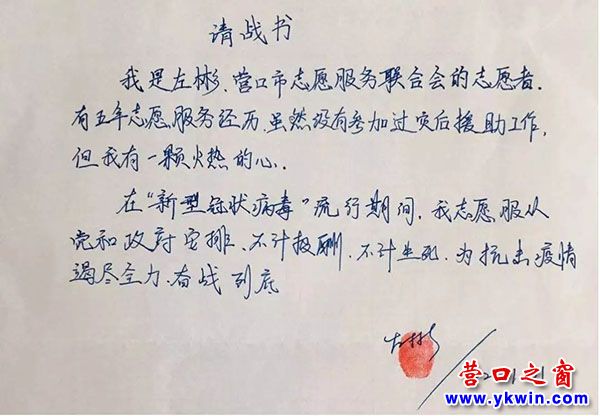 请战书
我是左彬、营口市志愿服务联合会的志愿者.
有五年志愿服务经历.虽然没有参加过灾后援助工作,
但我有一颗火热的心.
在“新型冠状病毒”流行期间,我志愿服从
党和政府安排、不计报酬.不计生死.为抗击疫情
竭尽全力.奋战到底
左彬
营口之窗
www.ykwin.com